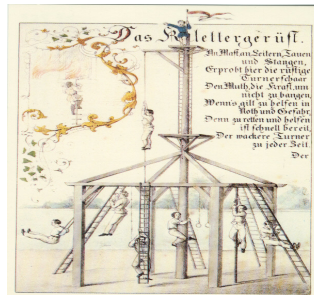 Das Klettergerüst.
An Mast, an Leitern, Tauen
und Stangen,
Erprobt hier die rüstige
Turnerschaar
Den Muth, die Kraft, um
nicht zu bangen,
Wenn's gilt zu helfen in
Noth und Gefahr,
Denn zu retten und helfen
ist schnell bereit,
Der wackere Turner
zu jeder Zeit.
Der